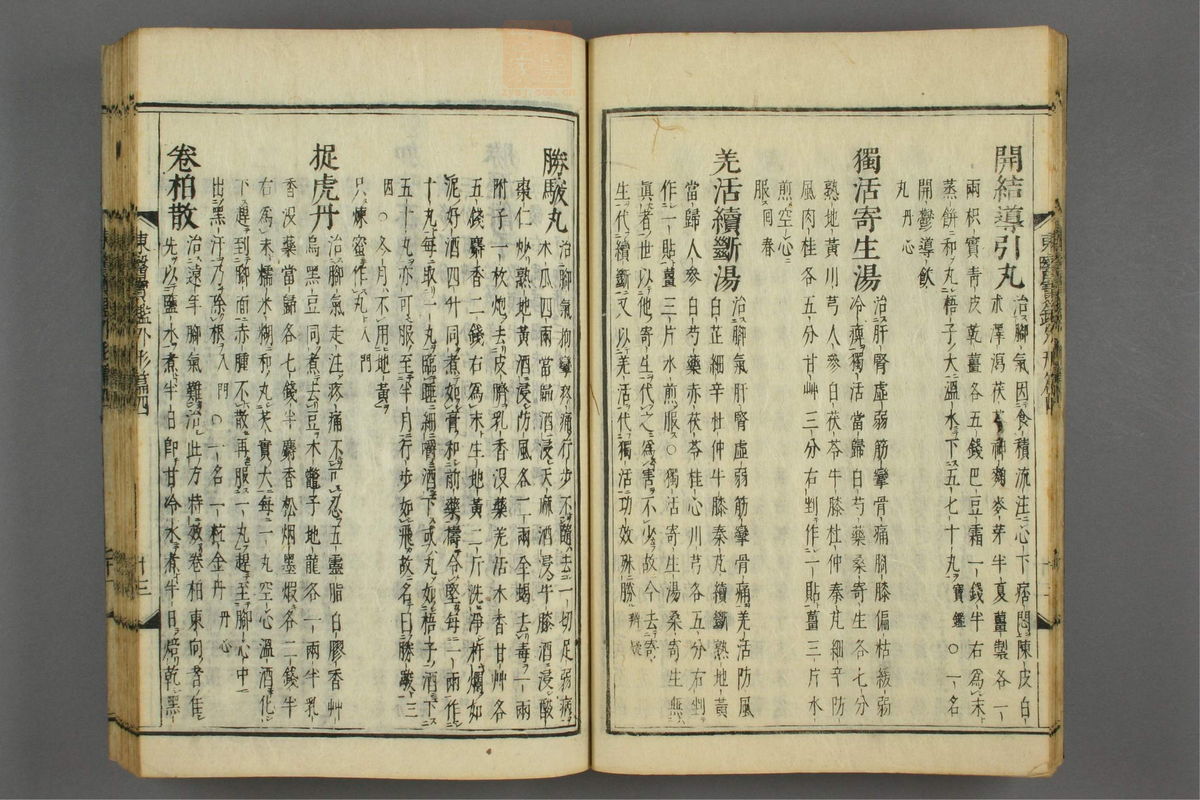 開結導引丸 治脚氣因食積流注心下痞悶陳皮白
朮澤瀉茯苓神麴麥芽半夏薑製各一
兩枳實青皮乾薑各五錢巴豆霜一錢半右爲末
蒸餠和丸梧子大溫水下五七十丸寶鑑〇一名
開鬱導飮
丸丹心
獨活寄生湯 治肝腎虛弱筋攣骨痛脚膝偏枯緩弱
冷痺獨活當歸白芍藥桑寄生各七分
熟地黃川芎人參白茯苓牛膝杜仲秦艽細辛防
風肉桂各五分甘艸三分右剉作一貼薑三片水
煎空心
服回春
羌活續斷湯 治脚氣肝腎虛弱筋攣骨痛羌活防風
白芷細辛杜仲牛膝秦艽續斷熟地黃
當歸人參白芍藥赤茯苓桂心川芎各五分右剉
作一貼薑三片水煎服〇獨活寄生湯桑寄生無
眞者世以他寄生代之爲害不少故今去寄
生代續斷又以羌活代獨活功效殊勝辨疑
勝駿丸 治脚氣拘攣疼痛行步不隨去一切足弱病
木瓜四兩當歸酒浸天麻酒浸牛膝酒浸酸
棗仁炒熟地黃酒浸防風各二兩全蝎去毒一兩
附子一枚炮去皮臍乳香沒藥羌活木香甘艸各
五錢麝香二錢右爲末生地黃二斤洗淨研爛如
泥好酒四升同煮如膏和前藥擣令堅每一兩作
十丸每取一丸臨睡細嚼酒下或丸如梧子酒下
五十丸亦可服至半月行步如飛故名曰勝駿三
因〇冬月不用地黃
只煉蜜作丸入門
捉虎丹 治脚氣走注疼痛不可忍五靈脂白膠香艸
烏黑豆同煮去豆木鼈子地龍各一兩半乳
香沒藥當歸各七錢半麝香松烟墨煆各二錢半
右爲末糯米糊和丸芡實大每一丸空心溫酒化
下趕到脚面赤腫不散再服一丸趕至脚心中
出黑汗乃除根入門〇一名一粒金丹丹心
卷柏散 治遠年脚氣難治此方特效卷柏東向者佳
先以鹽水煮半日卽甘冷水煮半日焙乾黑
東醫寶鑑外形篇四